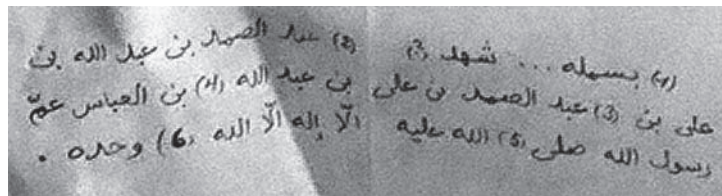 (1) بسمله ... شهد (2) عبد الصمد بن عبد الله بن
على بن (3) عبد الصمد بن على بن عبد الله (4) بن العباس عمّ
رسول الله صلى (5) الله عليه الّا إله الّا الله (6) وحده .